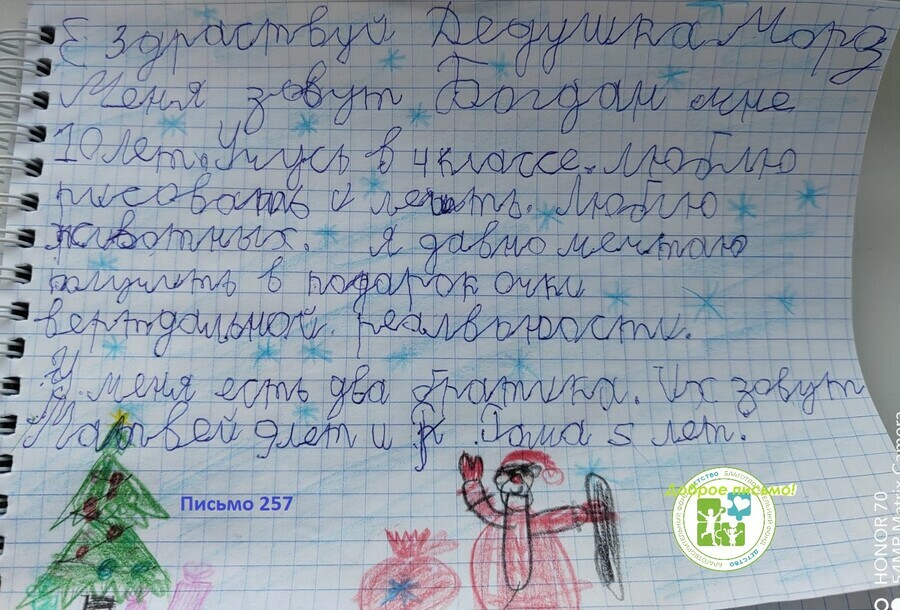 Е здраствуй Дедушка Мороз
Меня зовут Богдан мне
10 лет. Учусь в 4 классе. Люблю
рисовать и лепить. Люблю
животных. Я давно мечтаю
получить в подарок очки
вертдальной реалвьности.
У меня есть два братика. Их зовут
Матвей 9 лет и Рома 5 лет.
Письмо 257
Доброе письмо!
БЛАГОТВОРИТЕЛЬНЫЙ ФОНД ДЕТСТВО
HONOR 7.0